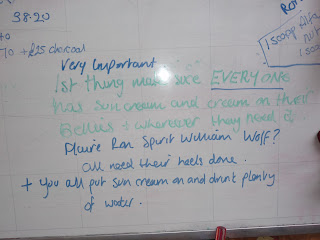 38.20
to
70 + £25 charcoal
1500pp
1500
Very Important
1st thing make sure EVERYONE
has sun cream and cream on their
Bellies + wherever they need it.
Ron Spirit William Wolf?
all need their heels done.
+ You all put sun cream on and drink plenty
of water.